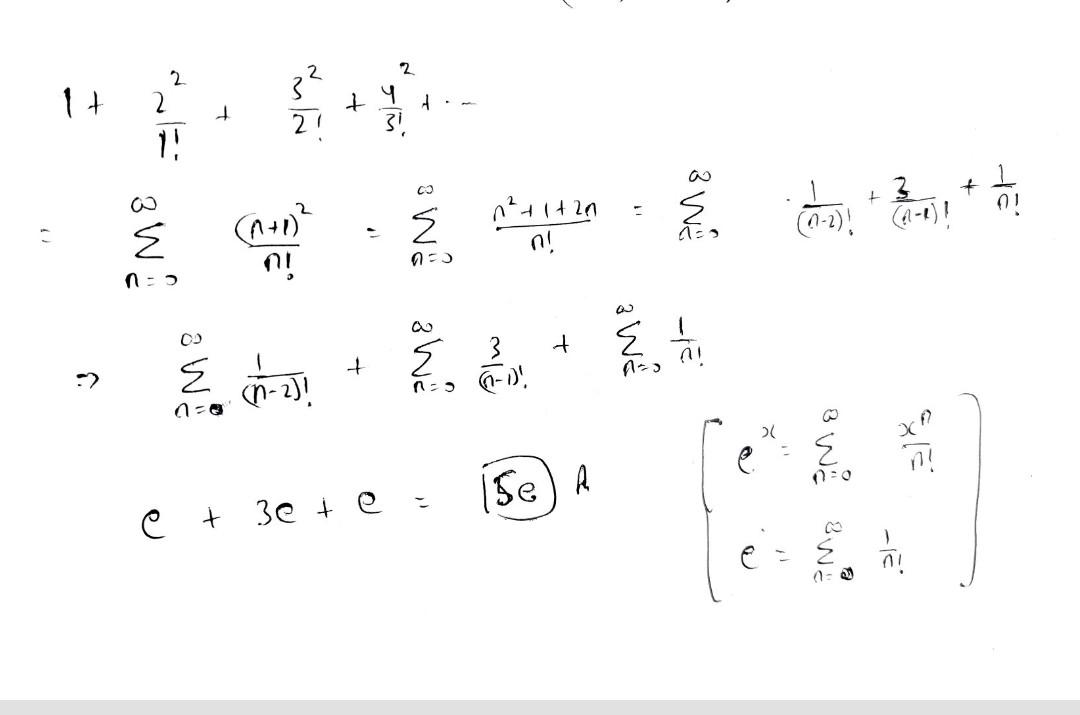 1 + 2²/1! + 3²/2! + 4²/3! + ...
= ∞ Σ n=0 (n+1)²/n! = ∞ Σ n=0 n²+1+2n/n! = ∞ Σ n=0 1/(n-2)! + 3/(n-1)! + 1/n!
⇒ ∞ Σ n=0 1/(n-2)! + ∞ Σ n=0 3/(n-1)! + ∞ Σ n=0 1/n!
e + 3e + e = 5e
[ eˣ = ∞ Σ n=0 xⁿ/n!
e = ∞ Σ n=0 1/n! ]